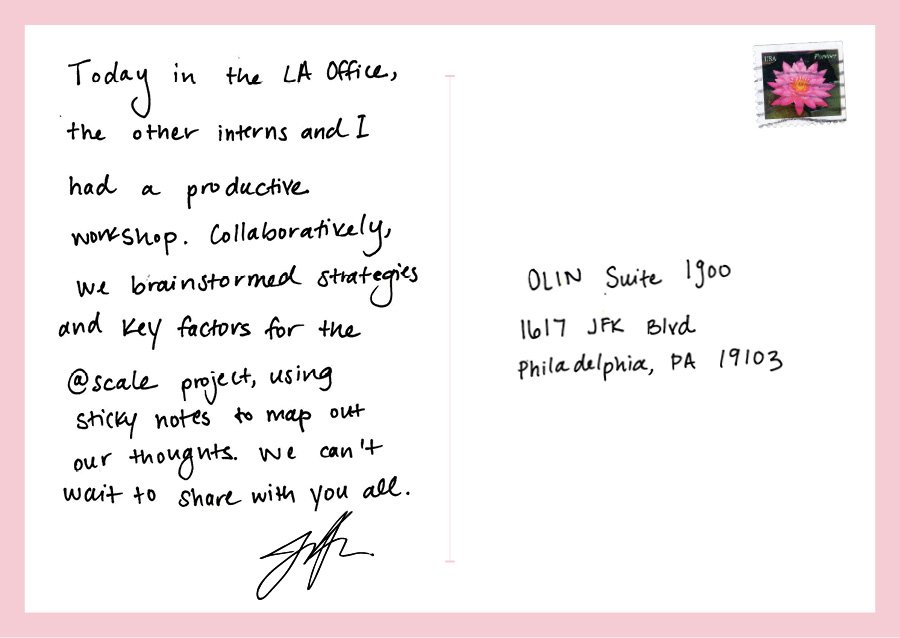 Today in the LA Office,
the other interns and I
had a productive
workshop. Collaboratively,
we brainstormed strategies
and key factors for the
@scale project, using
sticky notes to map out
our thoughts. We can't
wait to share with you all.
USA Forever
OLIN Suite 1900
1617 JFK Blvd
Philadelphia, PA 19103